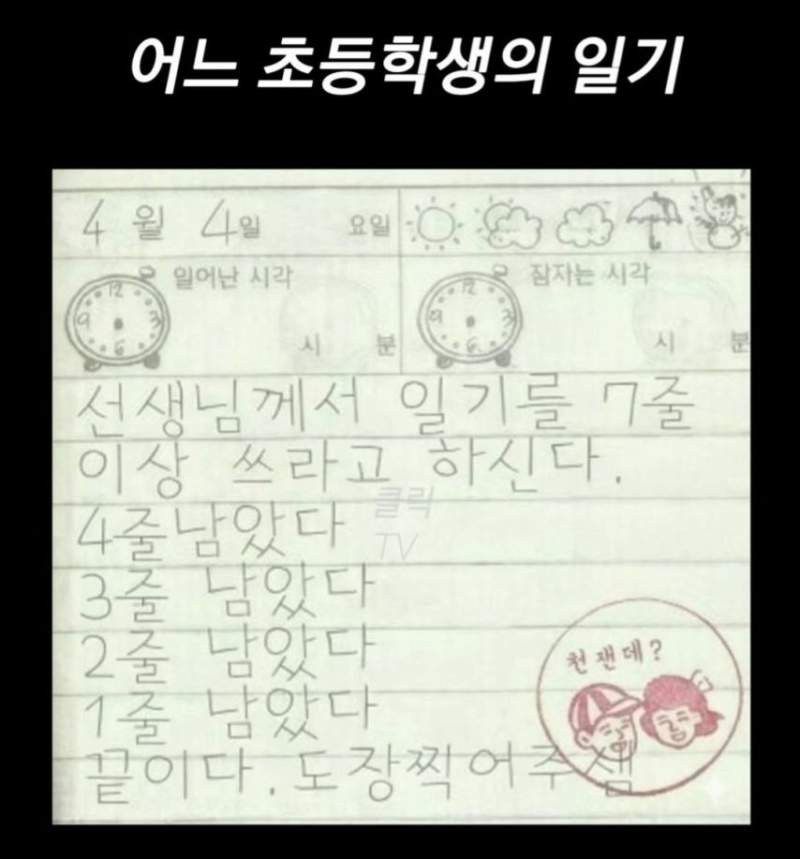 어느 초등학생의 일기
4월 4일 요일
일어난 시각 잠자는 시각
12 12
9 3 9 3
6 6
시 분 시 분
선생님께서 일기를 7줄
이상 쓰라고 하신다.
클릭
TV
4줄남았다
3줄 남았다
2줄 남았다
1줄 남았다
천잰데?
끝이다. 도장찍어주샘